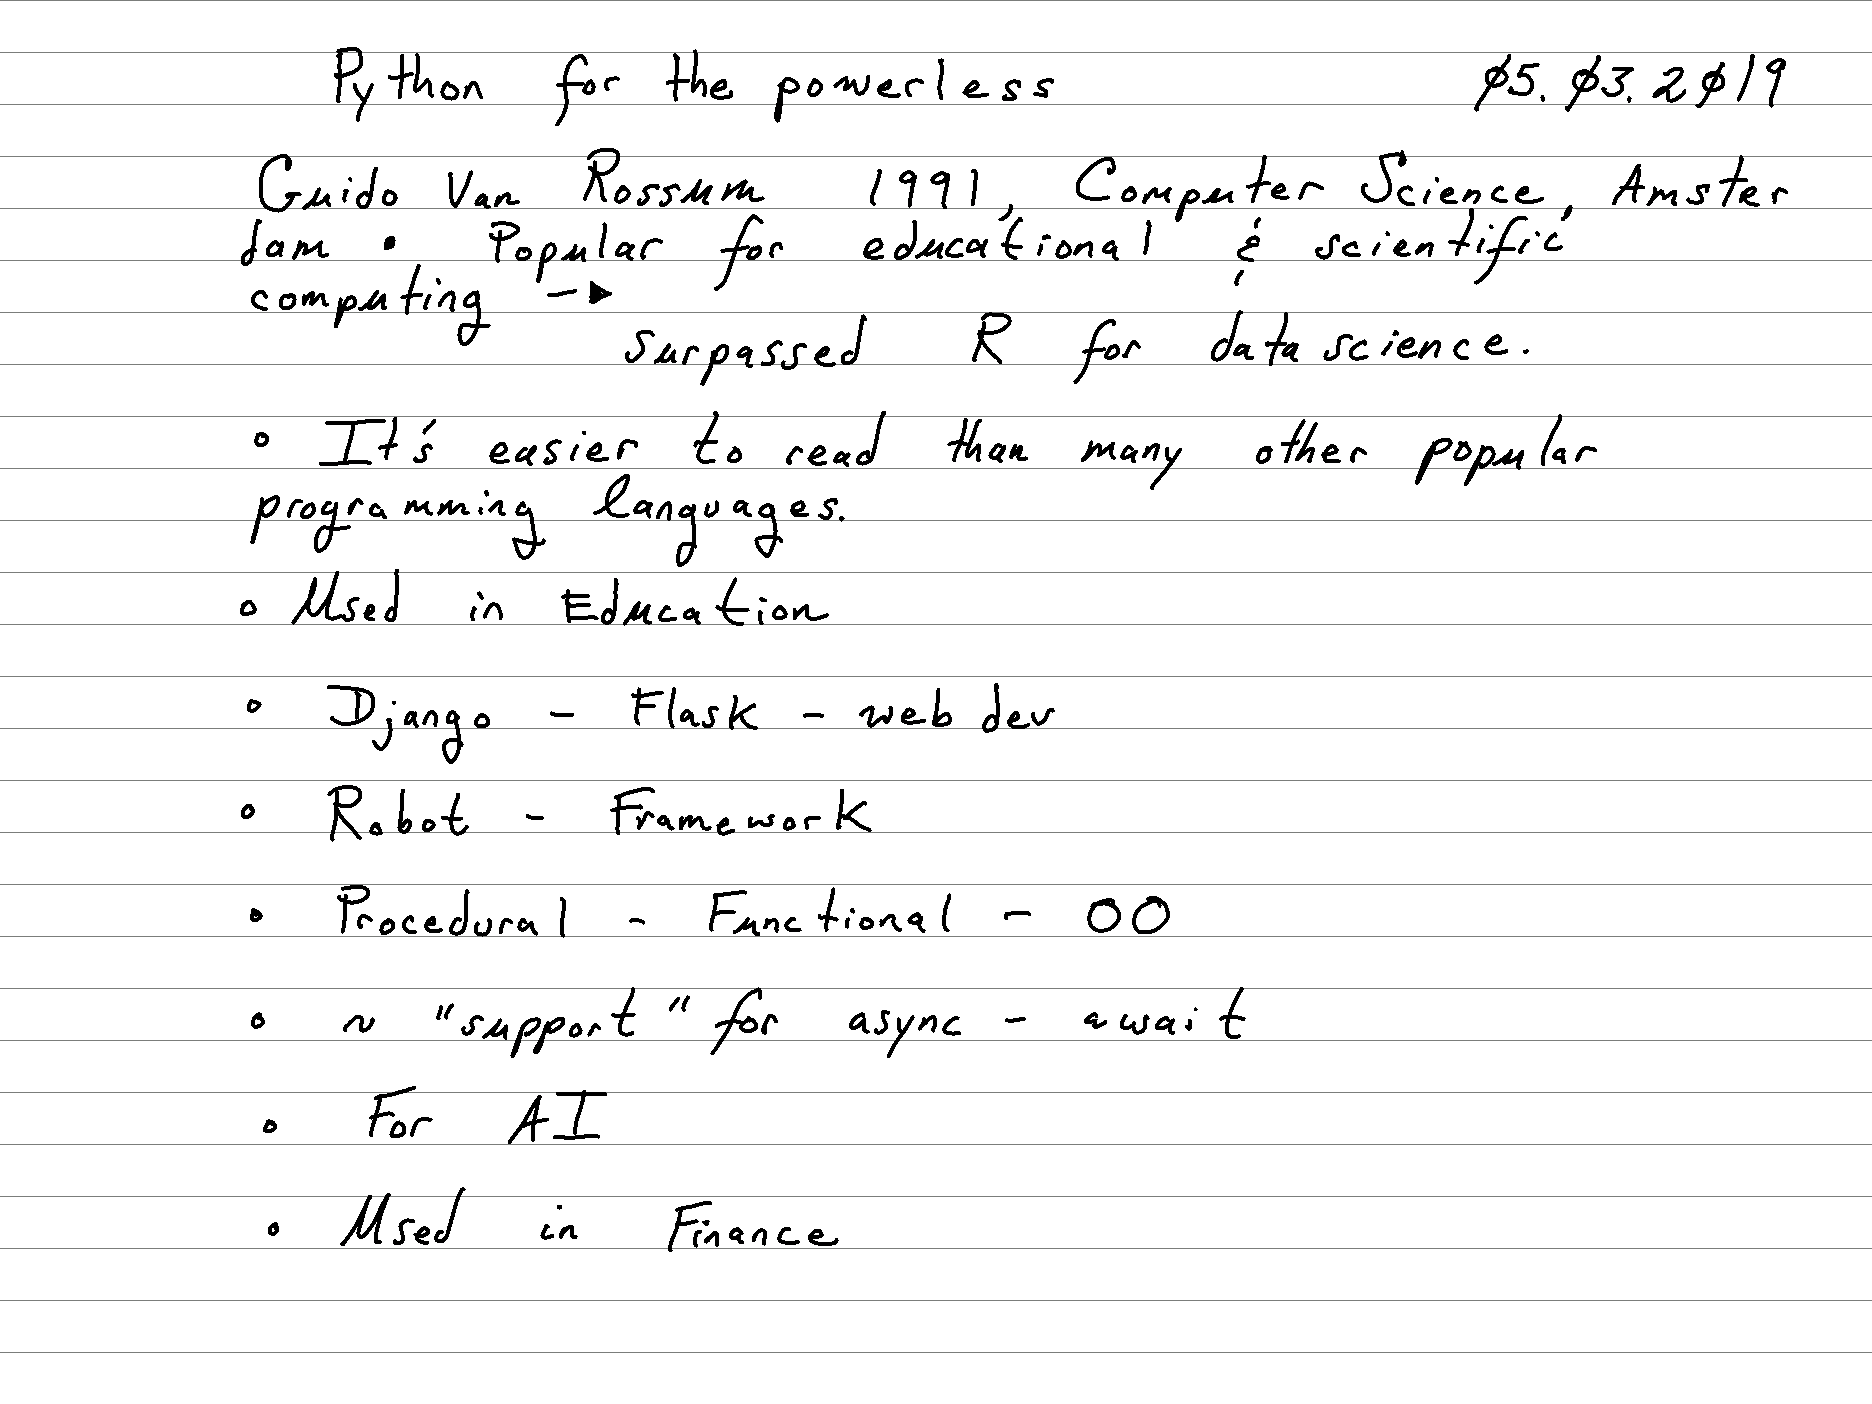 Python for the powerless 05.03.2019
Guido Van Rossum 1991, Computer Science, Amster
dam • Popular for educational & scientific
computing →
surpassed R for data science.
• It's easier to read than many other popular
programming languages.
• Used in Education
• Django - Flask - web dev
• Robot - Framework
• Procedural - Functional - OO
• ~ "support" for async - await
• For AI
• Used in Finance